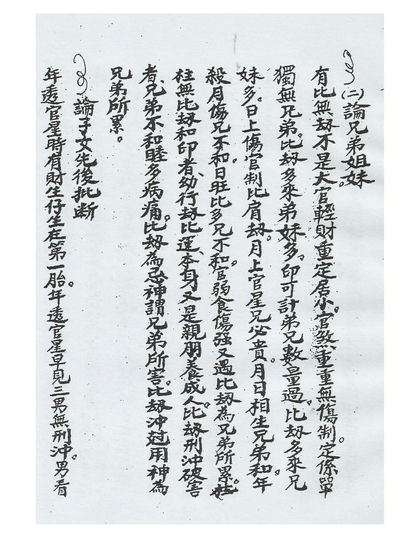 (二)論兄弟姐妹
有比無刼不是大官輕財重定居小官煞重重無傷制定係單
獨無兄弟比刼多來弟妹多印可計弟兄數量過比刼多來兄
妹多日上傷官制比肩刼月上官星兄必貴月日相生兄弟和年
殺月傷兄不和日旺比多兄不和官弱食傷強又遇比刼為兄弟所累
往無比刼和印者幼行刼比運本身又是親朋養成人比刼刑沖破害
者兄弟不和睦多病痛比刼為忌神謂兄弟所害比刼沖尅用神為
兄弟所累。
論子女先後批断
年透官星時有財生仔生在第一胎年透官星早見三男無刑沖男看